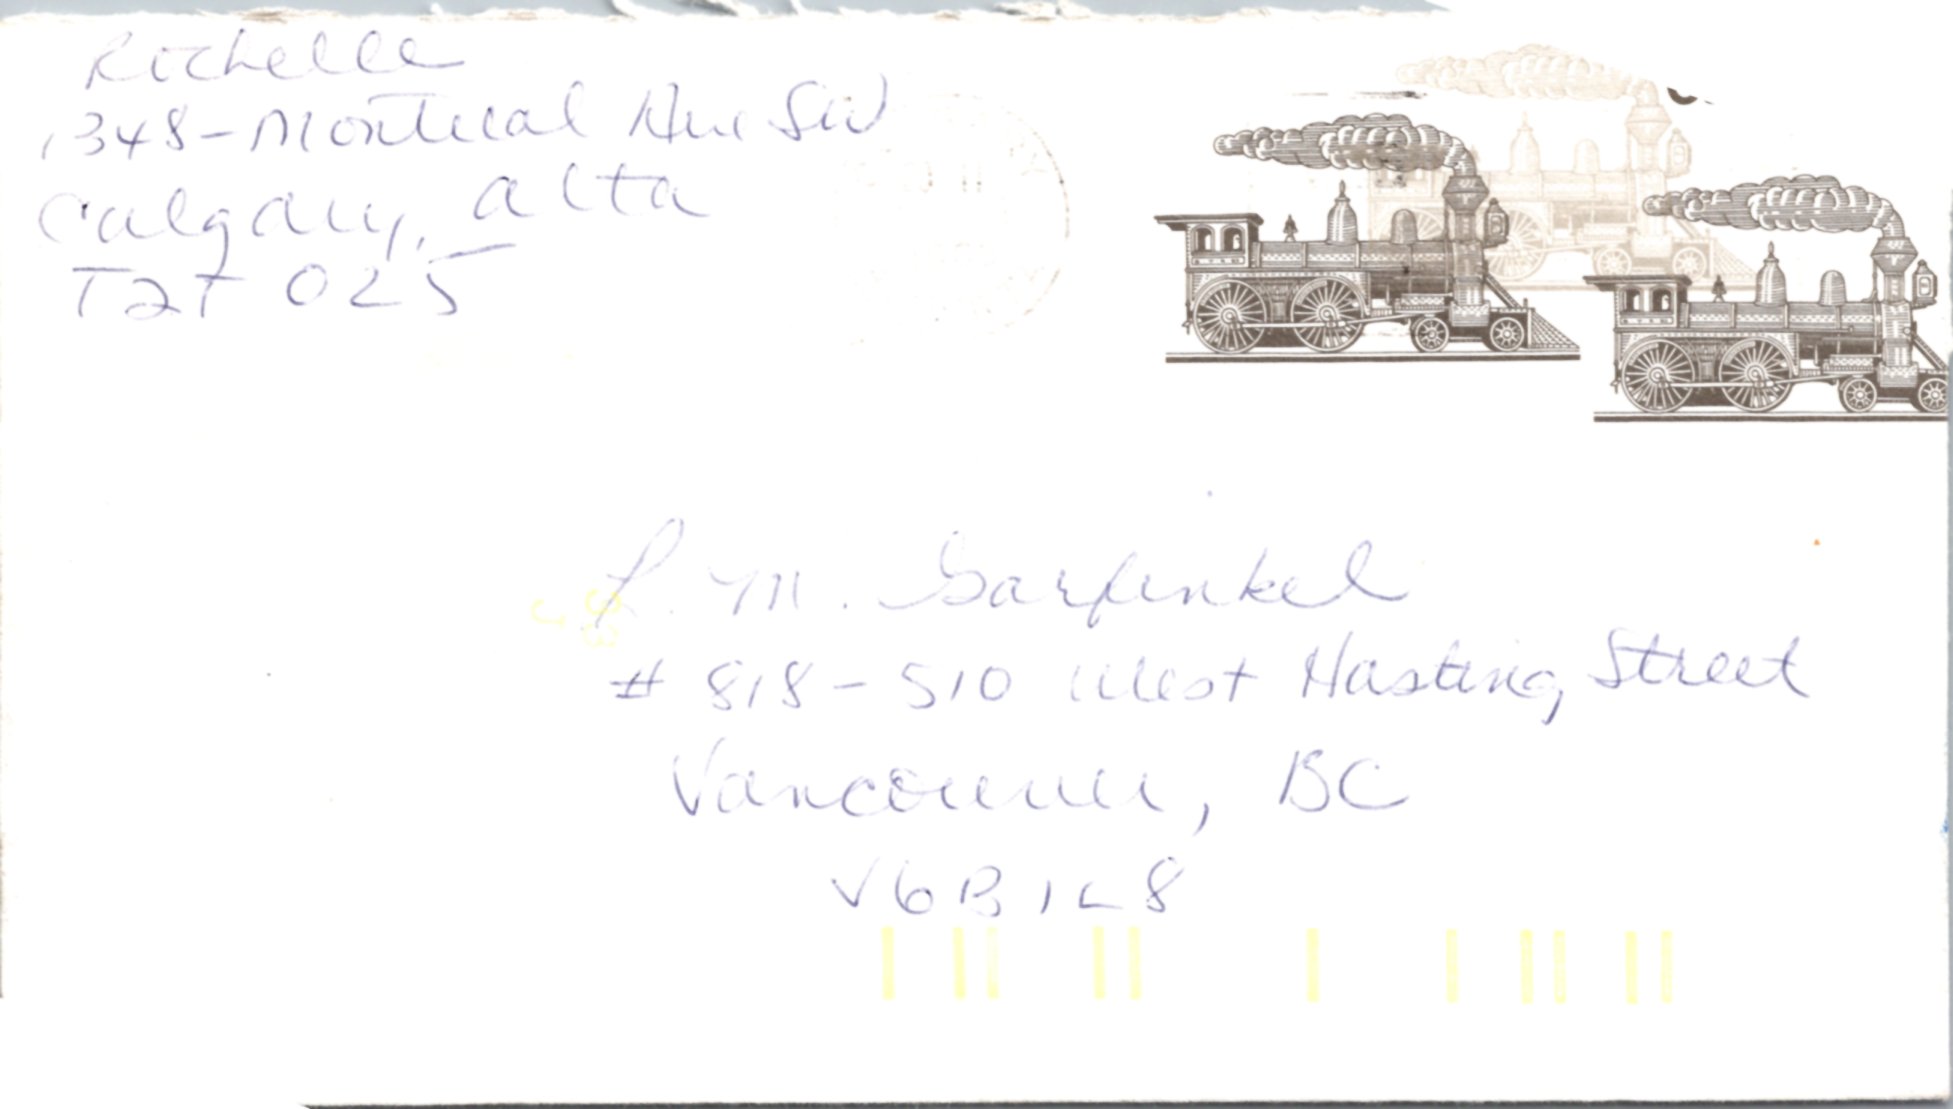 Rochelle
1348-Montreal Ave SW
Calgary, Alta
T2T 025
L. M. Garfinkel
# 818-510 West Hasting Street
Vancouver, BC
V6B 1L8